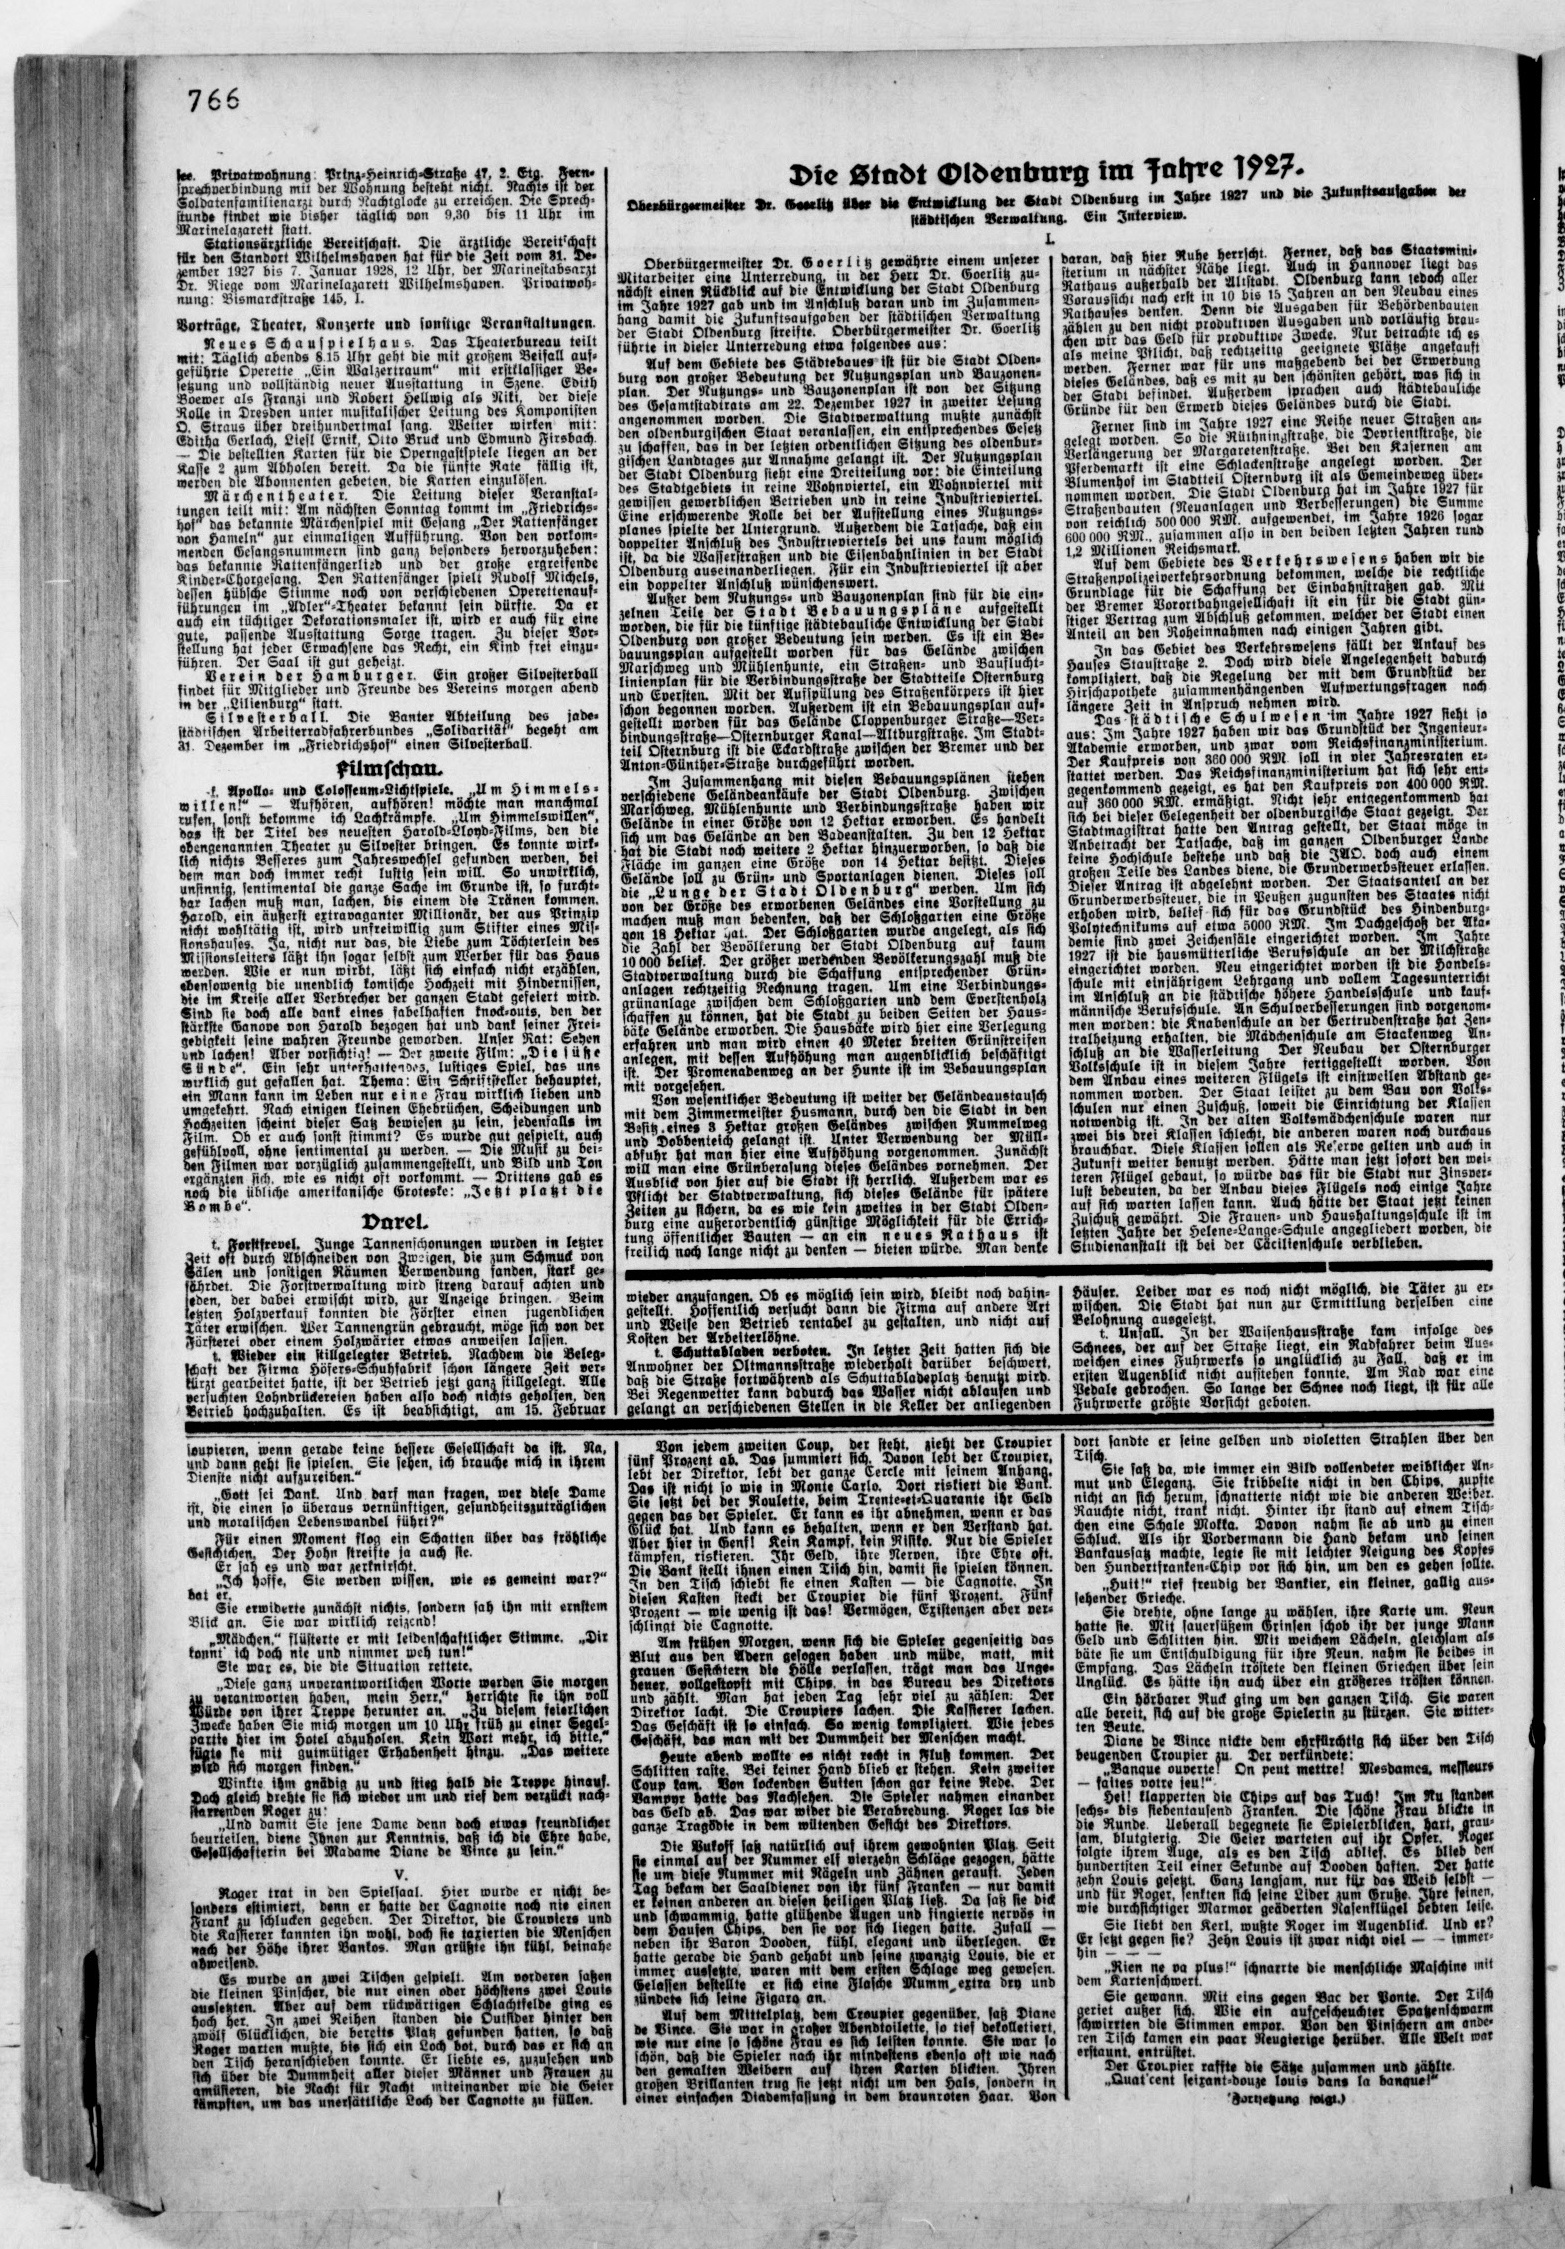 766
see. Privatwohnung: Prinz-Heinrich-Straße 47, 2. Etg. Fern-
sprechverbindung mit der Wohnung besteht nicht. Nachts ist der
Soldatenfamilienarzt durch Nachtglocke zu erreichen. Die Sprech-
stunde findet wie bisher täglich von 9,30 bis 11 Uhr im
Marinelazarett statt.
Stationsärztliche Bereitschaft. Die ärztliche Bereitschaft
für den Standort Wilhelmshaven hat für die Zeit vom 31. De-
zember 1927 bis 7. Januar 1928, 12 Uhr, der Marinestabsarzt
Dr. Riege vom Marinelazarett Wilhelmshaven. Privatwoh-
nung: Bismarckstraße 145, I.
Vorträge, Theater, Konzerte und sonstige Veranstaltungen.
Neues Schauspielhaus. Das Theaterbureau teilt
mit: Täglich abends 8.15 Uhr geht die mit großem Beifall auf-
geführte Operette „Ein Walzertraum" mit erstklassiger Be-
setzung und vollständig neuer Ausstattung in Szene. Edith
Boewer als Franzi und Robert Hellwig als Niki, der diese
Rolle in Dresden unter musikalischer Leitung des Komponisten
O. Straus über dreihundertmal sang. Weiter wirken mit:
Editha Gerlach, Liesl Ernik, Otto Bruck und Edmund Firsbach.
— Die bestellten Karten für die Operngastspiele liegen an der
Kasse 2 zum Abholen bereit. Da die fünfte Rate fällig ist,
werden die Abonnenten gebeten, die Karten einzulösen.
Märchentheater. Die Leitung dieser Veranstal-
tungen teilt mit: Am nächsten Sonntag kommt im „Friedrichs-
hof" das bekannte Märchenspiel mit Gesang „Der Rattenfänger
von Hameln" zur einmaligen Aufführung. Von den vorkom-
menden Gesangsnummern sind ganz besonders hervorzuheben:
das bekannte Rattenfängerlied und der große ergreifende
Kinder-Chorgesang. Den Rattenfänger spielt Rudolf Michels,
dessen hübsche Stimme noch von verschiedenen Operettenauf-
führungen im „Adler"-Theater bekannt sein dürfte. Da er
auch ein tüchtiger Dekorationsmaler ist, wird er auch für eine
gute, passende Ausstattung Sorge tragen. Zu dieser Vor-
stellung hat jeder Erwachsene das Recht, ein Kind frei einzu-
führen. Der Saal ist gut geheizt.
Verein der Hamburger. Ein großer Silvesterball
findet für Mitglieder und Freunde des Vereins morgen abend
in der „Lilienburg" statt.
Silvesterball. Die Banter Abteilung des jade-
städtischen Arbeiterradfahrerbundes „Solidarität" begeht am
31. Dezember im „Friedrichshof" einen Silvesterball.
Filmschau.
f. Apollo- und Colosseum-Lichtspiele. „Um Himmels-
willen!" — Aufhören, aufhören! möchte man manchmal
rufen, sonst bekomme ich Lachkrämpfe. „Um Himmelswillen",
das ist der Titel des neuesten Harold-Lloyd-Films, den die
obengenannten Theater zu Silvester bringen. Es konnte wirk-
lich nichts Besseres zum Jahreswechsel gefunden werden, bei
dem man doch immer recht lustig sein will. So unwirklich,
unsinnig, sentimental die ganze Sache im Grunde ist, so furcht-
bar lachen muß man, lachen, bis einem die Tränen kommen.
Harold, ein äußerst extravaganter Millionär, der aus Prinzip
nicht wohltätig ist, wird unfreiwillig zum Stifter eines Mis-
sionshauses. Ja, nicht nur das, die Liebe zum Töchterlein des
Missionsleiters läßt ihn sogar selbst zum Werber für das Haus
werden. Wie er nun wirbt, läßt sich einfach nicht erzählen,
ebensowenig die unendlich komische Hochzeit mit Hindernissen,
die im Kreise aller Verbrecher der ganzen Stadt gefeiert wird.
Sind sie doch alle dank eines fabelhaften knock-outs, den der
stärkste Ganove von Harold bezogen hat und dank seiner Frei-
gebigkeit seine wahren Freunde geworden. Unser Rat: Sehen
und lachen! Aber vorsichtig! — Der zweite Film: „Die süße
Sünde". Ein sehr unterhaltendes, lustiges Spiel, das uns
wirklich gut gefallen hat. Thema: Ein Schriftsteller behauptet,
ein Mann kann im Leben nur eine Frau wirklich lieben und
umgekehrt. Nach einigen kleinen Ehebrüchen, Scheidungen und
Hochzeiten scheint dieser Satz bewiesen zu sein, jedenfalls im
Film. Ob er auch sonst stimmt? Es wurde gut gespielt, auch
gefühlvoll, ohne sentimental zu werden. — Die Musik zu bei-
den Filmen war vorzüglich zusammengestellt, und Bild und Ton
ergänzten sich, wie es nicht oft vorkommt. — Drittens gab es
noch die übliche amerikanische Groteske: „Jetzt platzt die
Bombe".
Varel.
t. Forstfrevel. Junge Tannenschonungen wurden in letzter
Zeit oft durch Abschneiden von Zweigen, die zum Schmuck von
Sälen und sonstigen Räumen Verwendung fanden, stark ge-
fährdet. Die Forstverwaltung wird streng darauf achten und
jeden, der dabei erwischt wird, zur Anzeige bringen. Beim
letzten Holzverkauf konnten die Förster einen jugendlichen
Täter erwischen. Wer Tannengrün gebraucht, möge sich von der
Försterei oder einem Holzwärter etwas anweisen lassen.
t. Wieder ein stillgelegter Betrieb. Nachdem die Beleg-
schaft der Firma Höfers-Schuhfabrik schon längere Zeit ver-
kürzt gearbeitet hatte, ist der Betrieb jetzt ganz stillgelegt. Alle
versuchten Lohndrückereien haben also doch nichts geholfen, den
Betrieb hochzuhalten. Es ist beabsichtigt, am 15. Februar
Die Stadt Oldenburg im Jahre 1927.
Oberbürgermeister Dr. Goerlitz über die Entwicklung der Stadt Oldenburg im Jahre 1927 und die Zukunftsaufgaben der
städtischen Verwaltung. Ein Interview.
I.
Oberbürgermeister Dr. Goerlitz gewährte einem unserer
Mitarbeiter eine Unterredung, in der Herr Dr. Goerlitz zu-
nächst einen Rückblick auf die Entwicklung der Stadt Oldenburg
im Jahre 1927 gab und im Anschluß daran und im Zusammen-
hang damit die Zukunftsaufgaben der städtischen Verwaltung
der Stadt Oldenburg streifte. Oberbürgermeister Dr. Goerlitz
führte in dieser Unterredung etwa folgendes aus:
Auf dem Gebiete des Städtebaues ist für die Stadt Olden-
burg von großer Bedeutung der Nutzungsplan und Bauzonen-
plan. Der Nutzungs- und Bauzonenplan ist von der Sitzung
des Gesamtstadtrats am 22. Dezember 1927 in zweiter Lesung
angenommen worden. Die Stadtverwaltung mußte zunächst
den oldenburgischen Staat veranlassen, ein entsprechendes Gesetz
zu schaffen, das in der letzten ordentlichen Sitzung des oldenbur-
gischen Landtages zur Annahme gelangt ist. Der Nutzungsplan
der Stadt Oldenburg sieht eine Dreiteilung vor: die Einteilung
des Stadtgebiets in reine Wohnviertel, ein Wohnviertel mit
gewissen gewerblichen Betrieben und in reine Industrieviertel.
Eine erschwerende Rolle bei der Aufstellung eines Nutzungs-
planes spielte der Untergrund. Außerdem die Tatsache, daß ein
doppelter Anschluß des Industrieviertels bei uns kaum möglich
ist, da die Wasserstraßen und die Eisenbahnlinien in der Stadt
Oldenburg auseinanderliegen. Für ein Industrieviertel ist aber
ein doppelter Anschluß wünschenswert.
Außer dem Nutzungs- und Bauzonenplan sind für die ein-
zelnen Teile der Stadt Bebauungspläne aufgestellt
worden, die für die künftige städtebauliche Entwicklung der Stadt
Oldenburg von großer Bedeutung sein werden. Es ist ein Be-
bauungsplan aufgestellt worden für das Gelände zwischen
Marschweg und Mühlenhunte, ein Straßen- und Bauflucht-
linienplan für die Verbindungsstraße der Stadtteile Osternburg
und Eversten. Mit der Aufspülung des Straßenkörpers ist hier
schon begonnen worden. Außerdem ist ein Bebauungsplan auf-
gestellt worden für das Gelände Cloppenburger Straße—Ver-
bindungsstraße—Osternburger Kanal—Altburgstraße. Im Stadt-
teil Osternburg ist die Eckardstraße zwischen der Bremer und der
Anton-Günther-Straße durchgeführt worden.
Im Zusammenhang mit diesen Bebauungsplänen stehen
verschiedene Geländeankäufe der Stadt Oldenburg. Zwischen
Marschweg, Mühlenhunte und Verbindungsstraße haben wir
Gelände in einer Größe von 12 Hektar erworben. Es handelt
sich um das Gelände an den Badeanstalten. Zu den 12 Hektar
hat die Stadt noch weitere 2 Hektar hinzuerworben, so daß die
Fläche im ganzen eine Größe von 14 Hektar besitzt. Dieses
Gelände soll zu Grün- und Sportanlagen dienen. Dieses soll
die „Lunge der Stadt Oldenburg" werden. Um sich
von der Größe des erworbenen Geländes eine Vorstellung zu
machen muß man bedenken, daß der Schloßgarten eine Größe
von 18 Hektar hat. Der Schloßgarten wurde angelegt, als sich
die Zahl der Bevölkerung der Stadt Oldenburg auf kaum
10 000 belief. Der größer werdenden Bevölkerungszahl muß die
Stadtverwaltung durch die Schaffung entsprechender Grün-
anlagen rechtzeitig Rechnung tragen. Um eine Verbindungs-
grünanlage zwischen dem Schloßgarten und dem Everstenholz
schaffen zu können, hat die Stadt zu beiden Seiten der Haus-
bäke Gelände erworben. Die Hausbäke wird hier eine Verlegung
erfahren und man wird einen 40 Meter breiten Grünstreifen
anlegen, mit dessen Aufhöhung man augenblicklich beschäftigt
ist. Der Promenadenweg an der Hunte ist im Bebauungsplan
mit vorgesehen.
Von wesentlicher Bedeutung ist weiter der Geländeaustausch
mit dem Zimmermeister Husmann, durch den die Stadt in den
Besitz eines 3 Hektar großen Geländes zwischen Rummelweg
und Dobbenteich gelangt ist. Unter Verwendung der Müll-
abfuhr hat man hier eine Aufhöhung vorgenommen. Zunächst
will man eine Grünberasung dieses Geländes vornehmen. Der
Ausblick von hier auf die Stadt ist herrlich. Außerdem war es
Pflicht der Stadtverwaltung, sich dieses Gelände für spätere
Zeiten zu sichern, da es wie kein zweites in der Stadt Olden-
burg eine außerordentlich günstige Möglichkeit für die Errich-
tung öffentlicher Bauten — an ein neues Rathaus ist
freilich noch lange nicht zu denken — bieten würde. Man denke
daran, daß hier Ruhe herrscht. Ferner, daß das Staatsmini-
sterium in nächster Nähe liegt. Auch in Hannover liegt das
Rathaus außerhalb der Altstadt. Oldenburg kann jedoch aller
Voraussicht nach erst in 10 bis 15 Jahren an den Neubau eines
Rathauses denken. Denn die Ausgaben für Behördenbauten
zählen zu den nicht produktiven Ausgaben und vorläufig brau-
chen wir das Geld für produktive Zwecke. Nur betrachte ich es
als meine Pflicht, daß rechtzeitig geeignete Plätze angekauft
werden. Ferner war für uns maßgebend bei der Erwerbung
dieses Geländes, daß es mit zu den schönsten gehört, was sich in
der Stadt befindet. Außerdem sprachen auch städtebauliche
Gründe für den Erwerb dieses Geländes durch die Stadt.
Ferner sind im Jahre 1927 eine Reihe neuer Straßen an-
gelegt worden. So die Rüthningstraße, die Devrientstraße, die
Verlängerung der Margaretenstraße. Bei den Kasernen am
Pferdemarkt ist eine Schlackenstraße angelegt worden. Der
Blumenhof im Stadtteil Osternburg ist als Gemeindeweg über-
nommen worden. Die Stadt Oldenburg hat im Jahre 1927 für
Straßenbauten (Neuanlagen und Verbesserungen) die Summe
von reichlich 500 000 RM. aufgewendet, im Jahre 1926 sogar
600 000 RM., zusammen also in den beiden letzten Jahren rund
1,2 Millionen Reichsmark.
Auf dem Gebiete des Verkehrswesens haben wir die
Straßenpolizeiverkehrsordnung bekommen, welche die rechtliche
Grundlage für die Schaffung der Einbahnstraßen gab. Mit
der Bremer Vorortbahngesellschaft ist ein für die Stadt gün-
stiger Vertrag zum Abschluß gekommen, welcher der Stadt einen
Anteil an den Roheinnahmen nach einigen Jahren gibt.
In das Gebiet des Verkehrswesens fällt der Ankauf des
Hauses Staustraße 2. Doch wird diese Angelegenheit dadurch
kompliziert, daß die Regelung der mit dem Grundstück der
Hirschapotheke zusammenhängenden Aufwertungsfragen noch
längere Zeit in Anspruch nehmen wird.
Das städtische Schulwesen im Jahre 1927 sieht so
aus: Im Jahre 1927 haben wir das Grundstück der Ingenieur-
Akademie erworben, und zwar vom Reichsfinanzministerium.
Der Kaufpreis von 360 000 RM. soll in vier Jahresraten er-
stattet werden. Das Reichsfinanzministerium hat sich sehr ent-
gegenkommend gezeigt, es hat den Kaufpreis von 400 000 RM.
auf 360 000 RM. ermäßigt. Nicht sehr entgegenkommend hat
sich bei dieser Gelegenheit der oldenburgische Staat gezeigt. Der
Stadtmagistrat hatte den Antrag gestellt, der Staat möge in
Anbetracht der Tatsache, daß im ganzen Oldenburger Lande
keine Hochschule bestehe und daß die JAO. doch auch einem
großen Teile des Landes diene, die Grunderwerbssteuer erlassen.
Dieser Antrag ist abgelehnt worden. Der Staatsanteil an der
Grunderwerbssteuer, die in Peußen zugunsten des Staates nicht
erhoben wird, belief sich für das Grundstück des Hindenburg-
Polytechnikums auf etwa 5000 RM. Im Dachgeschoß der Aka-
demie sind zwei Zeichensäle eingerichtet worden. Im Jahre
1927 ist die hausmütterliche Berufsschule an der Milchstraße
eingerichtet worden. Neu eingerichtet worden ist die Handels-
schule mit einjährigem Lehrgang und vollem Tagesunterricht
im Anschluß an die städtische höhere Handelsschule und kauf-
männische Berufsschule. An Schulverbesserungen sind vorgenom-
men worden: die Knabenschule an der Gertrudenstraße hat Zen-
tralheizung erhalten, die Mädchenschule am Staakenweg An-
schluß an die Wasserleitung Der Neubau der Osternburger
Volksschule ist in diesem Jahre fertiggestellt worden. Von
dem Anbau eines weiteren Flügels ist einstweilen Abstand ge-
nommen worden. Der Staat leistet zu dem Bau von Volks-
schulen nur einen Zuschuß, soweit die Einrichtung der Klassen
notwendig ist. In der alten Volksmädchenschule waren nur
zwei bis drei Klassen schlecht, die anderen waren noch durchaus
brauchbar. Diese Klassen sollen als Reserve gelten und auch in
Zukunft weiter benutzt werden. Hätte man jetzt sofort den wei-
teren Flügel gebaut, so würde das für die Stadt nur Zinsver-
lust bedeuten, da der Anbau dieses Flügels noch einige Jahre
auf sich warten lassen kann. Auch hätte der Staat jetzt keinen
Zuschuß gewährt. Die Frauen- und Haushaltungsschule ist im
letzten Jahre der Helene-Lange-Schule angegliedert worden, die
Studienanstalt ist bei der Cäcilienschule verblieben.
wieder anzufangen. Ob es möglich sein wird, bleibt noch dahin-
gestellt. Hoffentlich versucht dann die Firma auf andere Art
und Weise den Betrieb rentabel zu gestalten, und nicht auf
Kosten der Arbeiterlöhne.
t. Schuttabladen verboten. In letzter Zeit hatten sich die
Anwohner der Oltmannsstraße wiederholt darüber beschwert,
daß die Straße fortwährend als Schuttabladeplatz benutzt wird.
Bei Regenwetter kann dadurch das Wasser nicht ablaufen und
gelangt an verschiedenen Stellen in die Keller der anliegenden
Häuser. Leider war es noch nicht möglich, die Täter zu er-
wischen. Die Stadt hat nun zur Ermittlung derselben eine
Belohnung ausgesetzt.
t. Unfall. In der Waisenhausstraße kam infolge des
Schnees, der auf der Straße liegt, ein Radfahrer beim Aus-
weichen eines Fuhrwerks so unglücklich zu Fall, daß er im
ersten Augenblick nicht aufstehen konnte. Am Rad war eine
Pedale gebrochen. So lange der Schnee noch liegt, ist für alle
Fuhrwerke größte Vorsicht geboten.
soupieren, wenn gerade keine bessere Gesellschaft da ist. Na,
und dann geht sie spielen. Sie sehen, ich brauche mich in ihrem
Dienste nicht aufzureiben."
„Gott sei Dank. Und darf man fragen, wer diese Dame
ist, die einen so überaus vernünftigen, gesundheitszuträglichen
und moralischen Lebenswandel führt?"
Für einen Moment flog ein Schatten über das fröhliche
Gesichtchen. Der Hohn streifte ja auch sie.
Er sah es und war zerknirscht.
„Ich hoffe, Sie werden wissen, wie es gemeint war?"
bat er.
Sie erwiderte zunächst nichts, sondern sah ihn mit ernstem
Blick an. Sie war wirklich reizend!
„Mädchen," flüsterte er mit leidenschaftlicher Stimme. „Dir
könnt' ich doch nie und nimmer weh tun!"
Sie war es, die die Situation rettete.
„Diese ganz unverantwortlichen Worte werden Sie morgen
zu verantworten haben, mein Herr," herrschte sie ihn voll
Würde von ihrer Treppe herunter an. „Zu diesem feierlichen
Zwecke haben Sie mich morgen um 10 Uhr früh zu einer Segel-
partie hier im Hotel abzuholen. Kein Wort mehr, ich bitte,"
fügte sie mit gutmütiger Erhabenheit hinzu. „Das weitere
wird sich morgen finden."
Winkte ihm gnädig zu und stieg halb die Treppe hinauf.
Doch gleich drehte sie sich wieder um und rief dem verzückt nach-
starrenden Roger zu:
„Und damit Sie jene Dame denn doch etwas freundlicher
beurteilen, diene Ihnen zur Kenntnis, daß ich die Ehre habe,
Gesellschafterin bei Madame Diane de Vince zu sein."
V.
Roger trat in den Spielsaal. Hier wurde er nicht be-
sonders estimiert, denn er hatte der Cagnotte noch nie einen
Frank zu schlucken gegeben. Der Direktor, die Croupiers und
die Kassierer kannten ihn wohl, doch sie taxierten die Menschen
nach der Höhe ihrer Bankos. Man grüßte ihn kühl, beinahe
abweisend.
Es wurde an zwei Tischen gespielt. Am vorderen saßen
die kleinen Pinscher, die nur einen oder höchstens zwei Louis
aussetzten. Aber auf dem rückwärtigen Schlachtfelde ging es
hoch her. In zwei Reihen standen die Outsider hinter den
zwölf Glücklichen, die bereits Platz gefunden hatten, so daß
Roger warten mußte, bis sich ein Loch bot, durch das er sich an
den Tisch heranschieben konnte. Er liebte es, zuzusehen und
sich über die Dummheit aller dieser Männer und Frauen zu
amüsieren, die Nacht für Nacht miteinander wie die Geier
kämpften, um das unersättliche Loch der Cagnotte zu füllen.
Von jedem zweiten Coup, der steht, zieht der Croupier
fünf Prozent ab. Das summiert sich. Davon lebt der Croupier,
lebt der Direktor, lebt der ganze Cercle mit seinem Anhang.
Das ist nicht so wie in Monte Carlo. Dort riskiert die Bank.
Sie setzt bei der Roulette, beim Trente-et-Quarante ihr Geld
gegen das der Spieler. Er kann es ihr abnehmen, wenn er das
Glück hat. Und kann es behalten, wenn er den Verstand hat.
Aber hier in Genf! Kein Kampf, kein Risiko. Nur die Spieler
kämpfen, riskieren. Ihr Geld, ihre Nerven, ihre Ehre oft.
Die Bank stellt ihnen einen Tisch hin, damit sie spielen können.
In den Tisch schiebt sie einen Kasten — die Cagnotte. In
diesen Kasten steckt der Croupier die fünf Prozent. Fünf
Prozent — wie wenig ist das! Vermögen, Existenzen aber ver-
schlingt die Cagnotte.
Am frühen Morgen, wenn sich die Spieler gegenseitig das
Blut aus den Adern gesogen haben und müde, matt, mit
grauen Gesichtern die Hölle verlassen, trägt man das Unge-
heuer, vollgestopft mit Chips, in das Bureau des Direktors
und zählt. Man hat jeden Tag sehr viel zu zählen. Der
Direktor lacht. Die Croupiers lachen. Die Kassierer lachen.
Das Geschäft ist so einfach. So wenig kompliziert. Wie jedes
Geschäft, das man mit der Dummheit der Menschen macht.
Heute abend wollte es nicht recht in Fluß kommen. Der
Schlitten raste. Bei keiner Hand blieb er stehen. Kein zweiter
Coup kam. Von lockenden Suiten schon gar keine Rede. Der
Vampyr hatte das Nachsehen. Die Spieler nahmen einander
das Geld ab. Das war wider die Verabredung. Roger las die
ganze Tragödie in dem wütenden Gesicht des Direktors.
Die Vukoff saß natürlich auf ihrem gewohnten Platz. Seit
sie einmal auf der Nummer elf vierzehn Schläge gezogen, hätte
sie um diese Nummer mit Nägeln und Zähnen gerauft. Jeden
Tag bekam der Saaldiener von ihr fünf Franken — nur damit
er keinen anderen an diesen heiligen Platz ließ. Da saß sie dick
und schwammig, hatte glühende Augen und fingierte nervös in
dem Haufen Chips, den sie vor sich liegen hatte. Zufall —
neben ihr Baron Dooden, kühl, elegant und überlegen. Er
hatte gerade die Hand gehabt und seine zwanzig Louis, die er
immer aussetzte, waren mit dem ersten Schlage weg gewesen.
Gelassen bestellte er sich eine Flasche Mumm extra dry und
zündete sich seine Figaro an.
Auf dem Mittelplatz, dem Croupier gegenüber, saß Diane
de Vince. Sie war in großer Abendtoilette, so tief dekolletiert,
wie nur eine so schöne Frau es sich leisten konnte. Sie war so
schön, daß die Spieler nach ihr mindestens ebenso oft wie nach
den gemalten Weibern auf ihren Karten blickten. Ihren
großen Brillanten trug sie jetzt nicht um den Hals, sondern in
einer einfachen Diademfassung in dem braunroten Haar. Von
dort sandte er seine gelben und violetten Strahlen über den
Tisch.
Sie saß da, wie immer ein Bild vollendeter weiblicher An-
mut und Eleganz. Sie kribbelte nicht in den Chips, zupfte
nicht an sich herum, schnatterte nicht wie die anderen Weiber.
Rauchte nicht, trank nicht. Hinter ihr stand auf einem Tisch-
chen eine Schale Mokka. Davon nahm sie ab und zu einen
Schluck. Als ihr Vordermann die Hand bekam und seinen
Bankaussatz machte, legte sie mit leichter Neigung des Kopfes
den Hundertfranken-Chip vor sich hin, um den es gehen sollte.
„Huit!" rief freudig der Bankier, ein kleiner, gallig aus-
sehender Grieche.
Sie drehte, ohne lange zu wählen, ihre Karte um. Neun
hatte sie. Mit sauersüßem Grinsen schob ihr der junge Mann
Geld und Schlitten hin. Mit weichem Lächeln, gleichsam als
bäte sie um Entschuldigung für ihre Neun, nahm sie beides in
Empfang. Das Lächeln tröstete den kleinen Griechen über sein
Unglück. Es hätte ihn auch über ein größeres trösten können.
Ein hörbarer Ruck ging um den ganzen Tisch. Sie waren
alle bereit, sich auf die große Spielerin zu stürzen. Sie witter-
ten Beute.
Diane de Vince nickte dem ehrfürchtig sich über den Tisch
beugenden Croupier zu. Der verkündete:
„Banque ouverte! On peut mettre! Mesdames, messieurs
— faites votre jeu!"
Hei! klapperten die Chips auf das Tuch! Im Nu standen
sechs- bis siebentausend Franken. Die schöne Frau blickte in
die Runde. Ueberall begegnete sie Spielerblicken, hart, grau-
sam, blutgierig. Die Geier warteten auf ihr Opfer. Roger
folgte ihrem Auge, als es den Tisch ablief. Es blieb den
hundertsten Teil einer Sekunde auf Dooden haften. Der hatte
zehn Louis gesetzt. Ganz langsam, nur für das Weib selbst —
und für Roger, senkten sich seine Lider zum Gruße. Ihre feinen,
wie durchsichtiger Marmor geäderten Nasenflügel bebten leise.
Sie liebt den Kerl, wußte Roger im Augenblick. Und er?
Er setzt gegen sie? Zehn Louis ist zwar nicht viel — — immer-
hin — — —
„Rien ne va plus!" schnarrte die menschliche Maschine mit
dem Kartenschwert.
Sie gewann. Mit eins gegen Bac der Ponte. Der Tisch
geriet außer sich. Wie ein aufgescheuchter Spatzenschwarm
schwirrten die Stimmen empor. Von den Pinschern am ande-
ren Tisch kamen ein paar Neugierige herüber. Alle Welt war
erstaunt, entrüstet.
Der Croupier raffte die Sätze zusammen und zählte.
„Quat'cent seixant-douze louis dans la banque!"
(Fortsetzung folgt.)